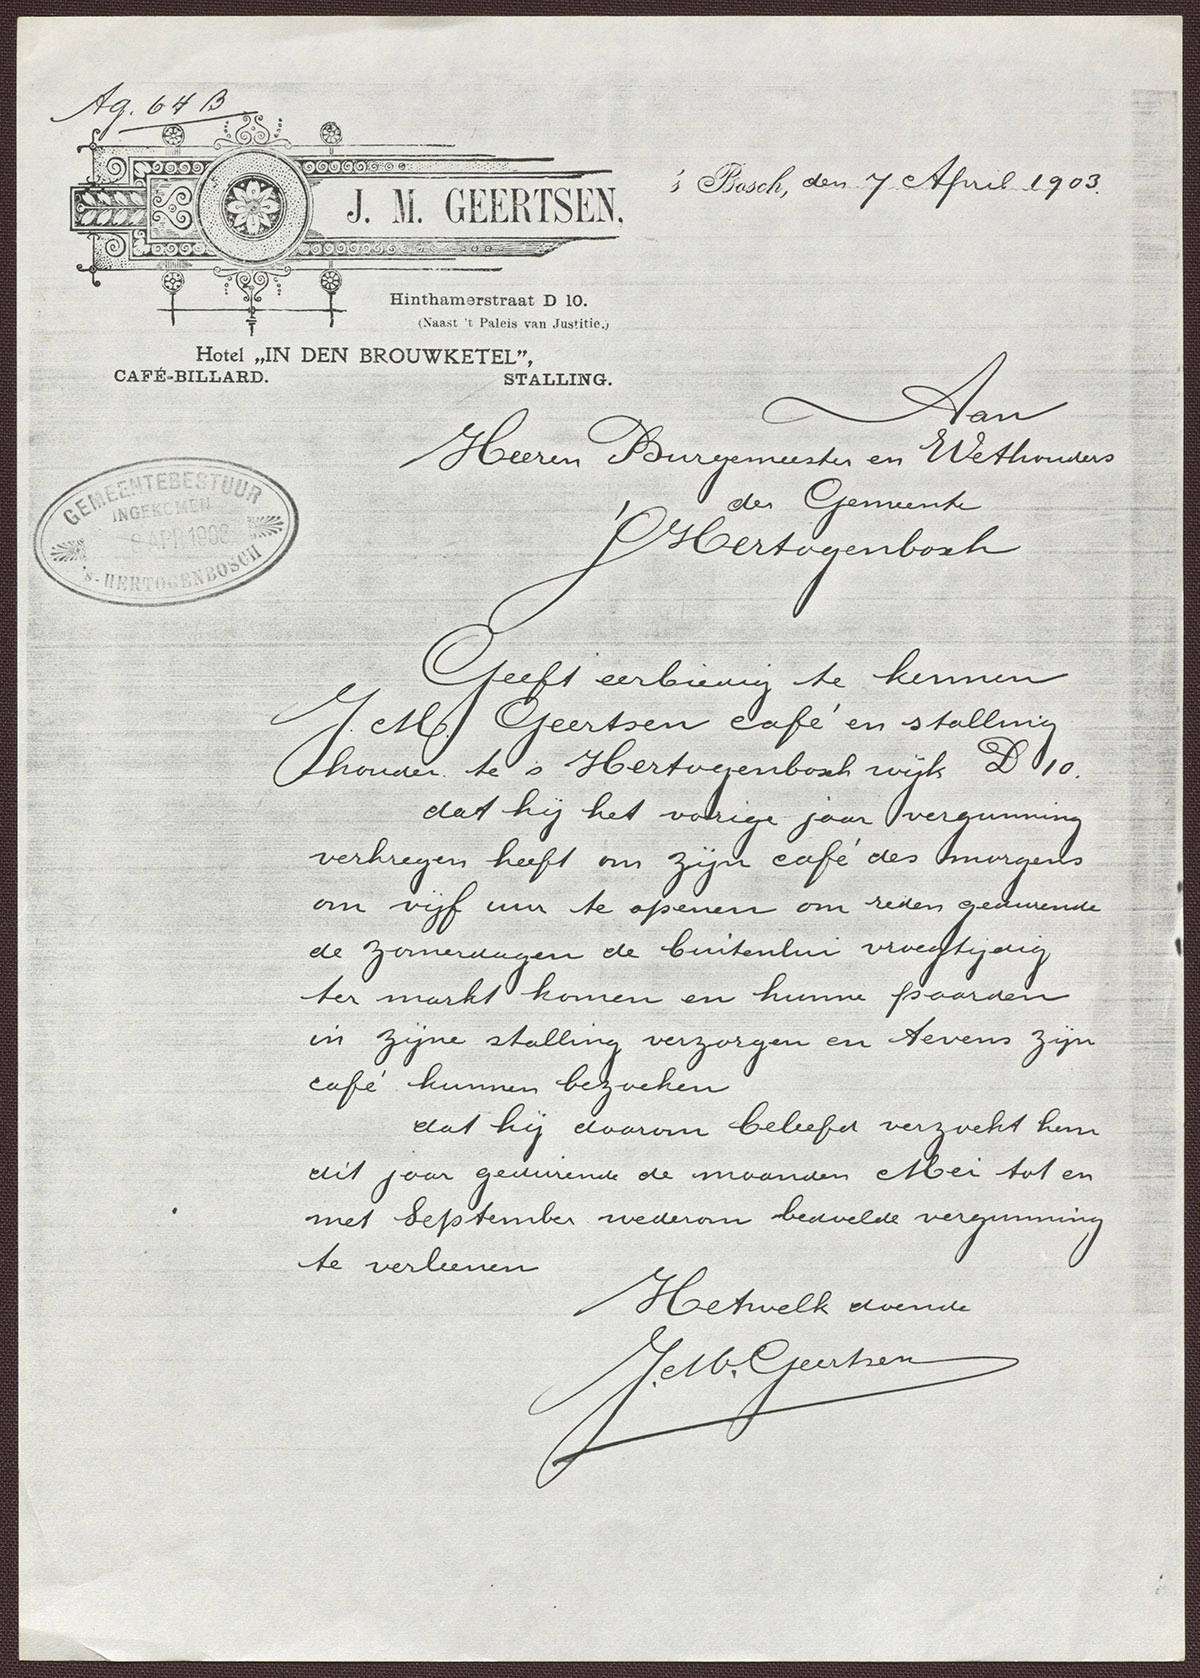 Ag. 64 B
J. M. GEERTSEN.
's Bosch, den 7 April 1903.
Hinthamerstraat D 10.
(Naast 't Paleis van Justitie.)
Hotel „IN DEN BROUWKETEL”,
CAFÉ-BILLARD. STALLING.
Aan
Heeren Burgemeester en Wethouders
der Gemeente
's Hertogenbosch
GEMEENTEBESTUUR
INGEKOMEN
8 APR 1903
's-HERTOGENBOSCH
Geeft eerbiedig te kennen
J. M. Geertsen café en stalling
houder te 's Hertogenbosch wijk D 10.
dat hij het vorige jaar vergunning
verkregen heeft om zijn café des morgens
om vijf uur te openen om reden gedurende
de zomerdagen de buitenlui vroegtijdig
ter markt komen en hunne paarden
in zijne stalling verzorgen en tevens zijn
café kunnen bezoeken
dat hij daarom beleefd verzoekt hem
dit jaar gedurende de maanden Mei tot en
met September wederom bedoelde vergunning
te verleenen
Hetwelk doende
J. M. Geertsen